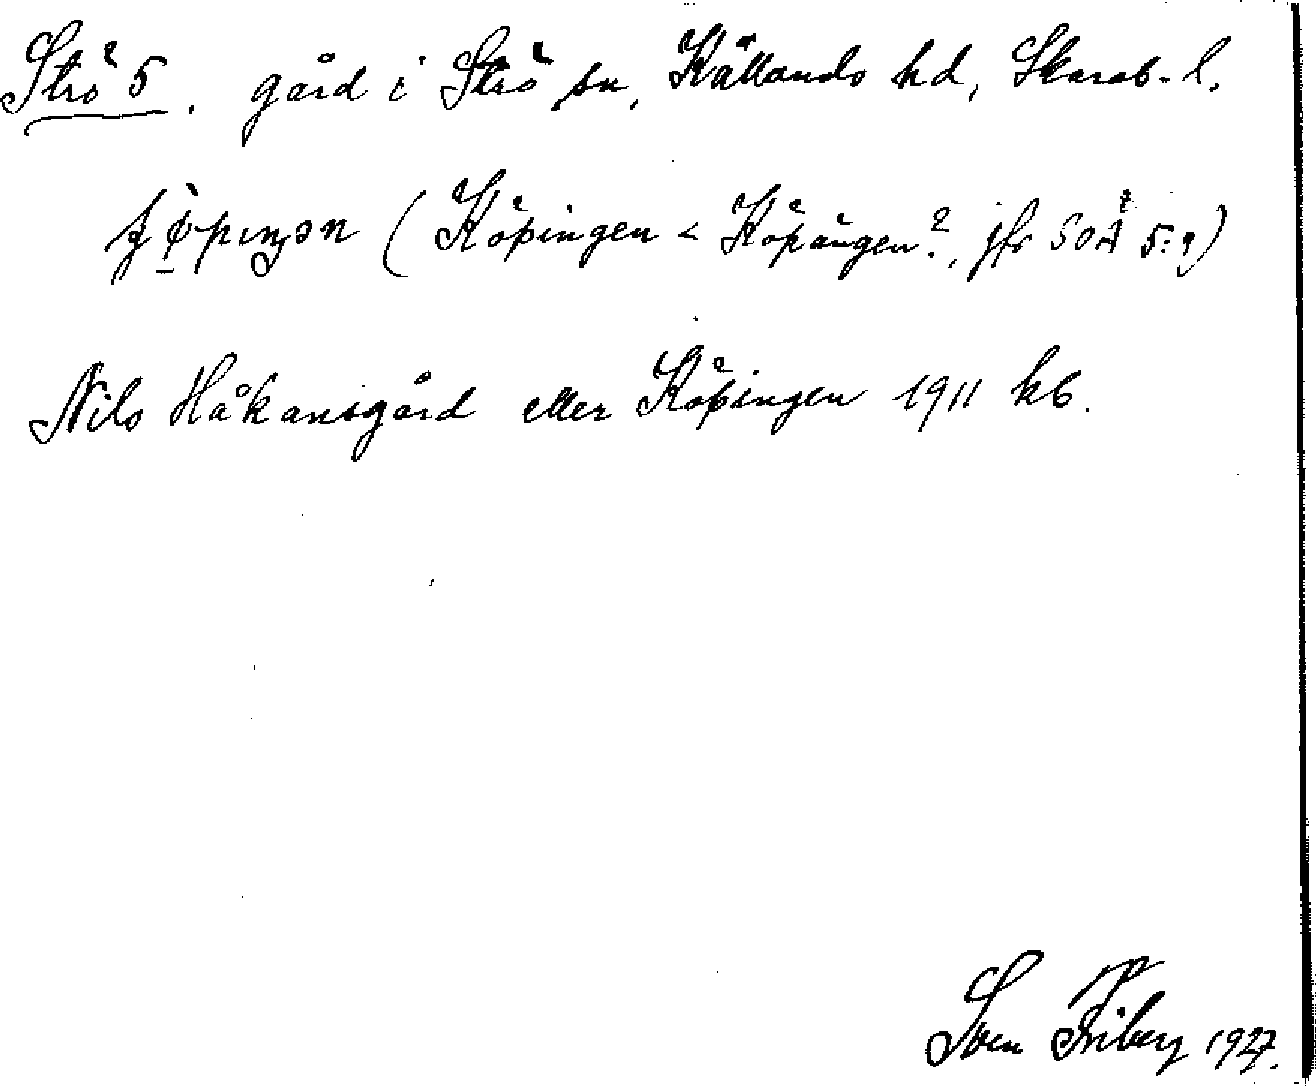 Strö 5. gård i Strö sn, Kållands hd, Skarab. l.
(Köpingen < Köpängen?, jfr SOÄ 5:9)
Nils Håkansgård eller Köpingen 1911 kb.
Sven Friberg 1927.